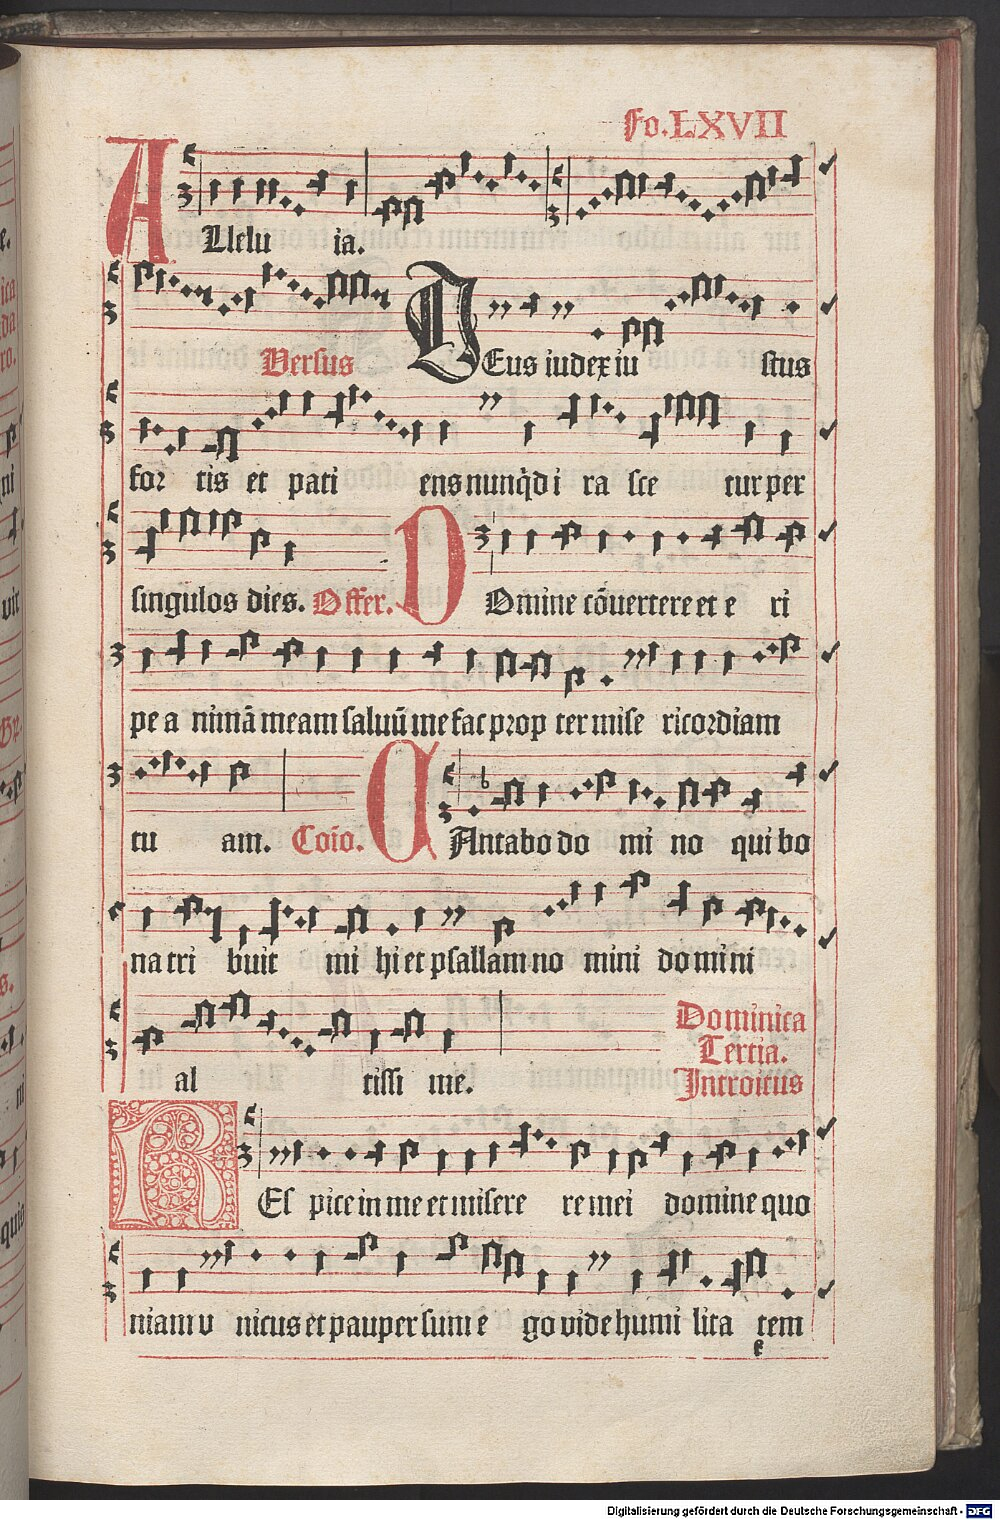 Fo. LXVII
ALlelu ia.
Versus DEus iudex iu stus
for tis et pati ens nunq̄d i ra sce tur per
singulos dies. Offer. DOmine cōuertere et e ri
pe a nimā meam saluū me fac prop ter mise ricordiam
tu am. Coīo. CAntabo do mi no qui bo
na tri buit mi hi et psallam no mini domini
al tissi me. Dominica
Tertia.
Introitus
REs pice in me et misere re mei domine quo
niam v nicus et pauper sum e go vide humi lita tem
Digitalisierung gefördert durch die Deutsche Forschungsgemeinschaft - DFG